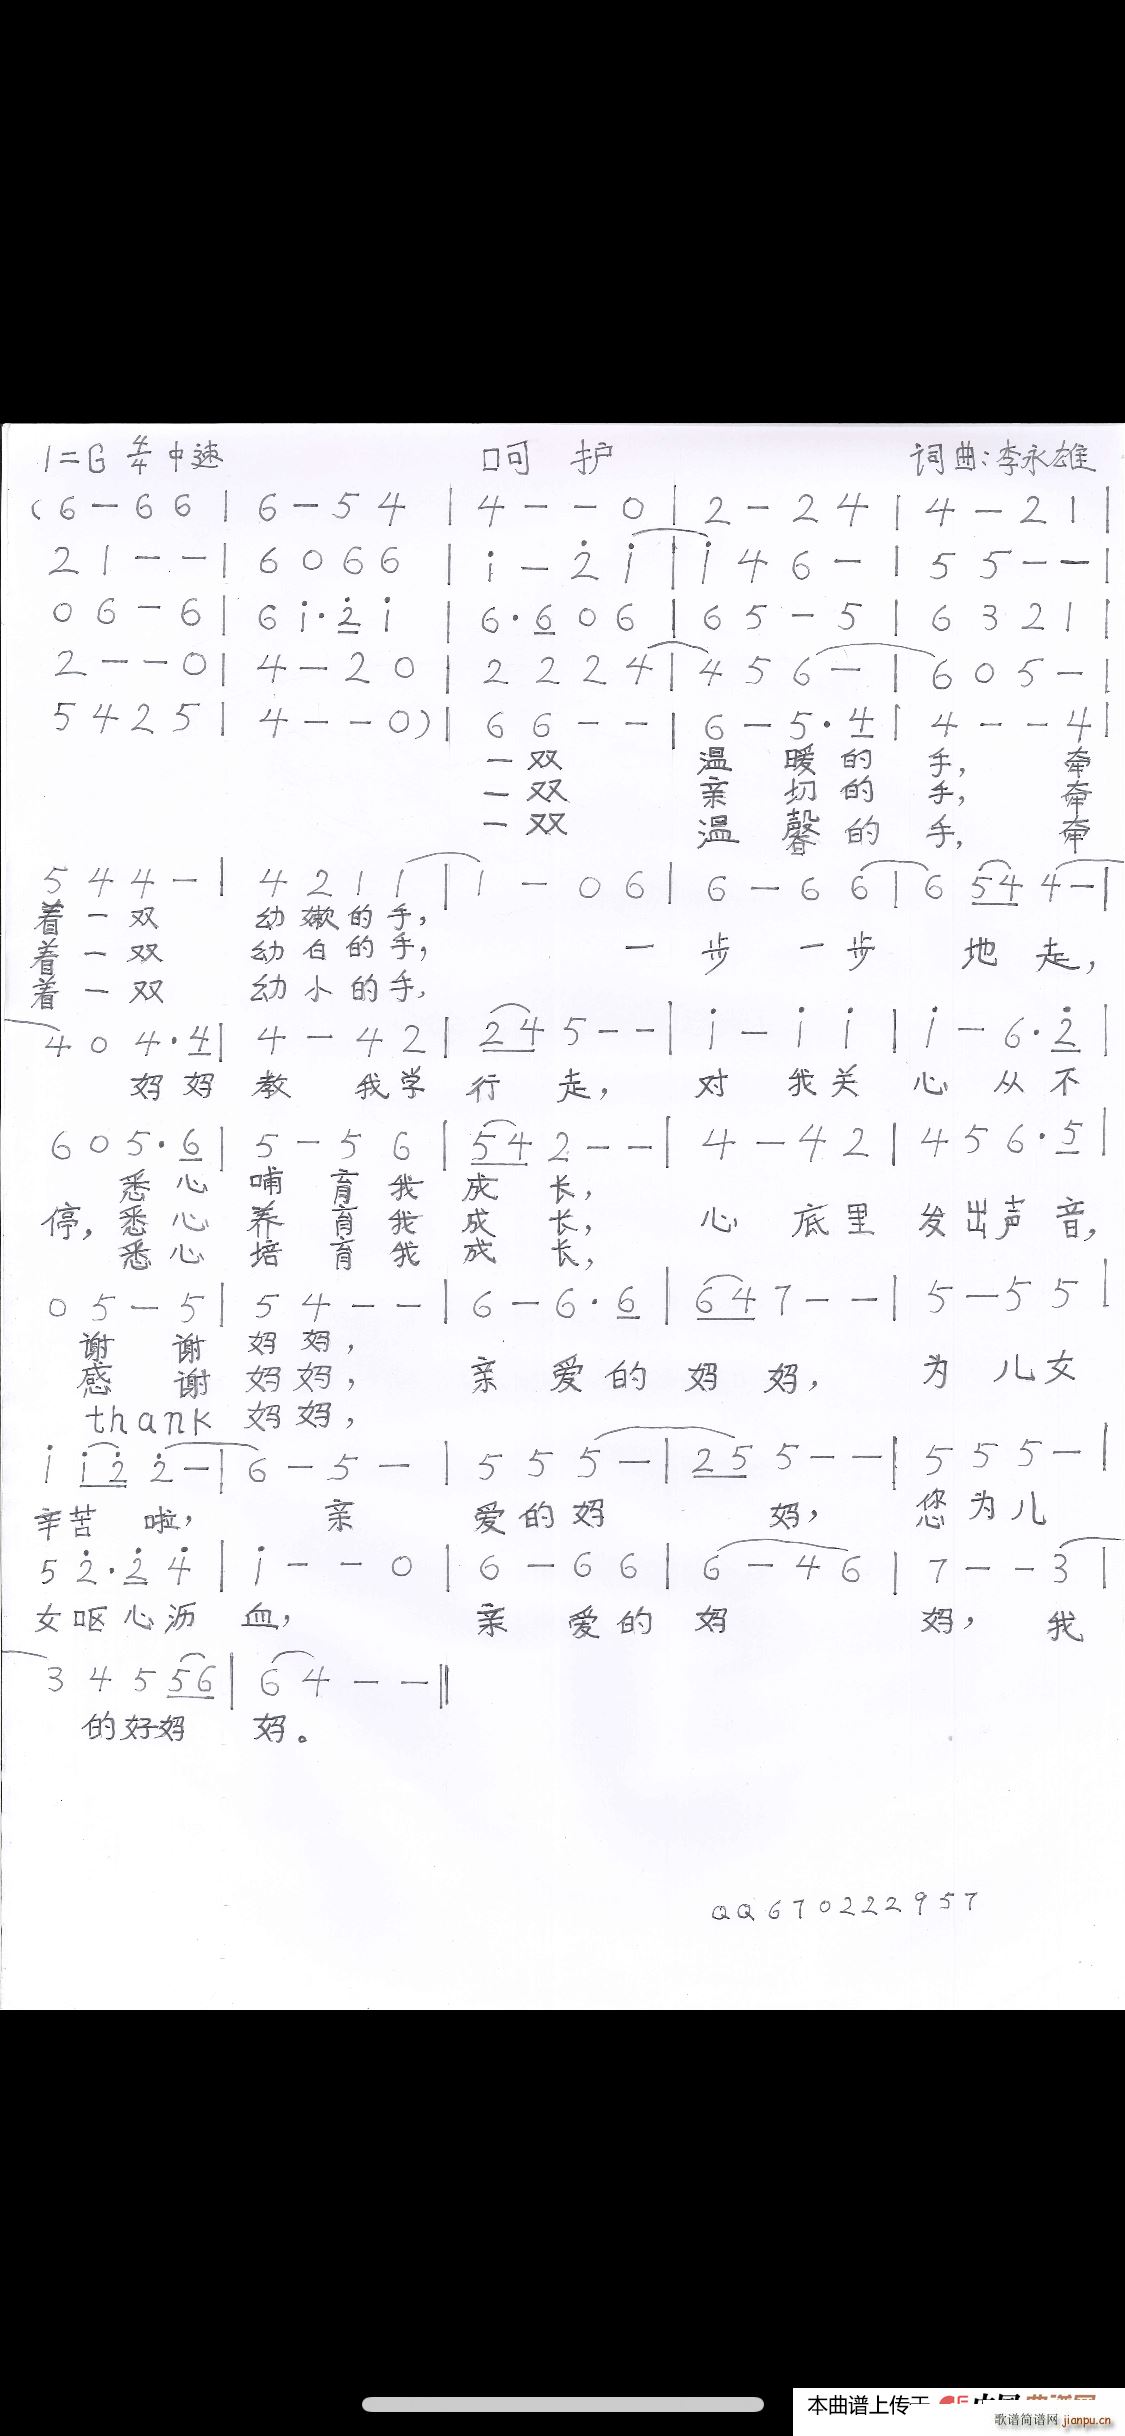 1=G 4/4 中速 呵 护 词曲:李永雄
(6 - 6 6 | 6 - 5 4 | 4 - - 0 | 2 - 2 4 | 4 - 2 1 |
2 1 - - | 6 0 6 6 | i - 2̇ i | i 4 6 - | 5 5 - - |
0 6 - 6 | 6 i· 2̇ i | 6· 6 0 6 | 6 5 - 5 | 6 3 2 1 |
2 - - 0 | 4 - 2 0 | 2 2 2 4 | 4 5 6 - | 6 0 5 - |
5 4 2 5 | 4 - - 0) | 6 6 - - | 6 - 5· 4 | 4 - - 4 |
一双 温暖的手, 牵
一双 亲切的手, 牵
一双 温馨的手, 牵
5 4 4 - | 4 2 1 1 | 1 - 0 6 | 6 - 6 6 | 6 5 4 4 - |
着一双 幼嫩的手,
着一双 幼白的手, 一步一步地走,
着一双 幼小的手,
4 0 4· 4 | 4 - 4 2 | 2 4 5 - - | i - i i | i - 6· 2̇ |
妈妈教我学行走, 对我关心从不
6 0 5· 6 | 5 - 5 6 | 5 4 2 - - | 4 - 4 2 | 4 5 6· 5 |
悉心哺育我成长,
停, 悉心养育我成长, 心底里发出声音,
悉心培育我成长,
0 5 - 5 | 5 4 - - | 6 - 6· 6 | 6 4 7 - - | 5 - 5 5 |
谢谢妈妈,
感谢妈妈, 亲爱的妈妈, 为儿女
thank 妈妈,
i i 2̇ 2̇ - | 6 - 5 - | 5 5 5 - | 2 5 5 - - | 5 5 5 - |
辛苦啦, 亲爱的妈妈, 您为儿
5 2̇· 2̇ 4̇ | i - - 0 | 6 - 6 6 | 6 - 4 6 | 7 - - 3 |
女呕心沥血, 亲爱的妈妈, 我
3 4 5 5 6 | 6 4 - - ‖
的好妈妈。
QQ670222957
本曲谱上传于
歌谱简谱网 jianpu.cn